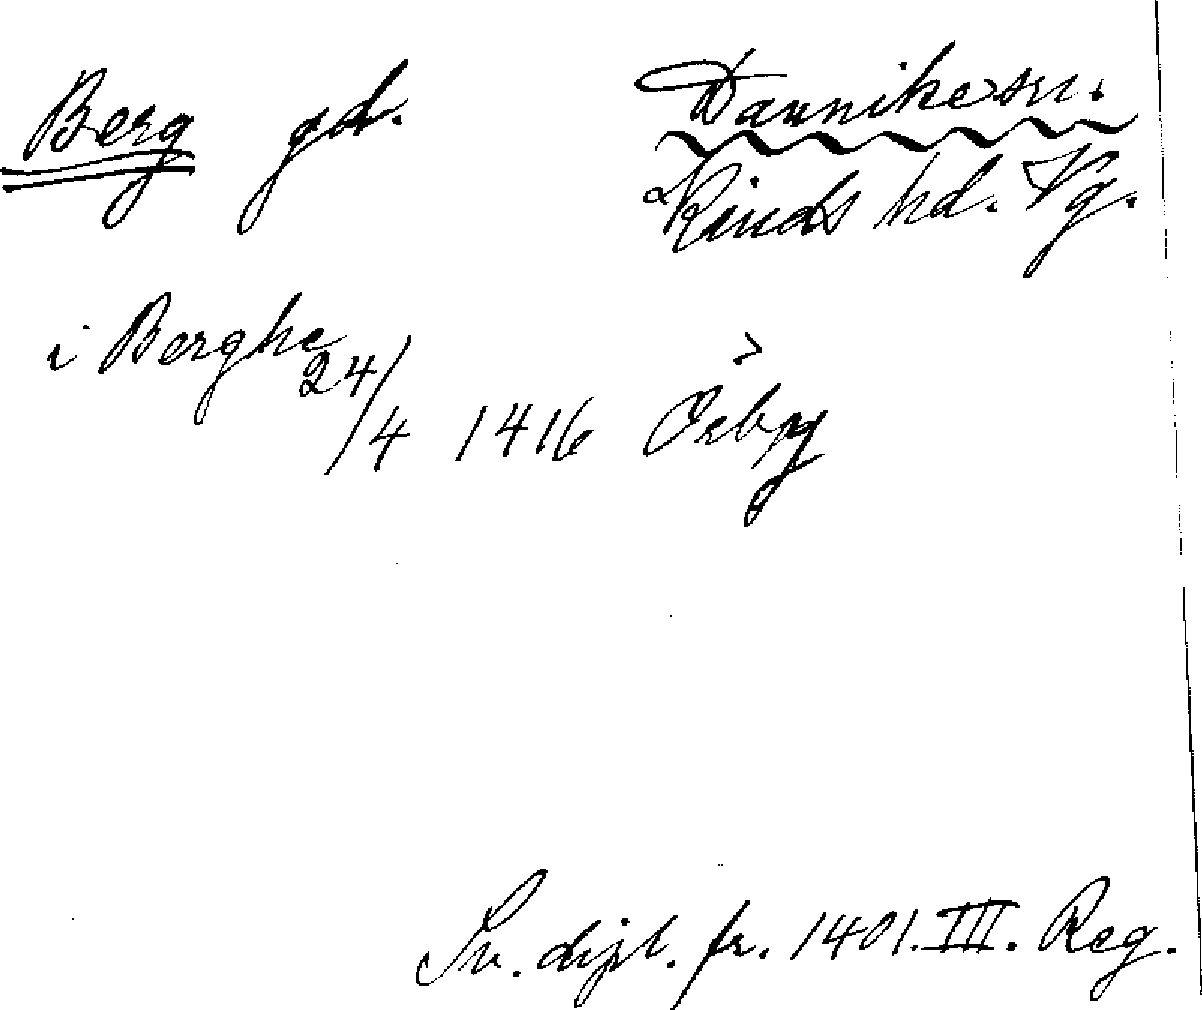 Berg gd. Dannike sn.
Kinds hd. Vg.
i Berghe
24/4 1416 Örby
Sv. dipl. fr. 1401. III. Reg.